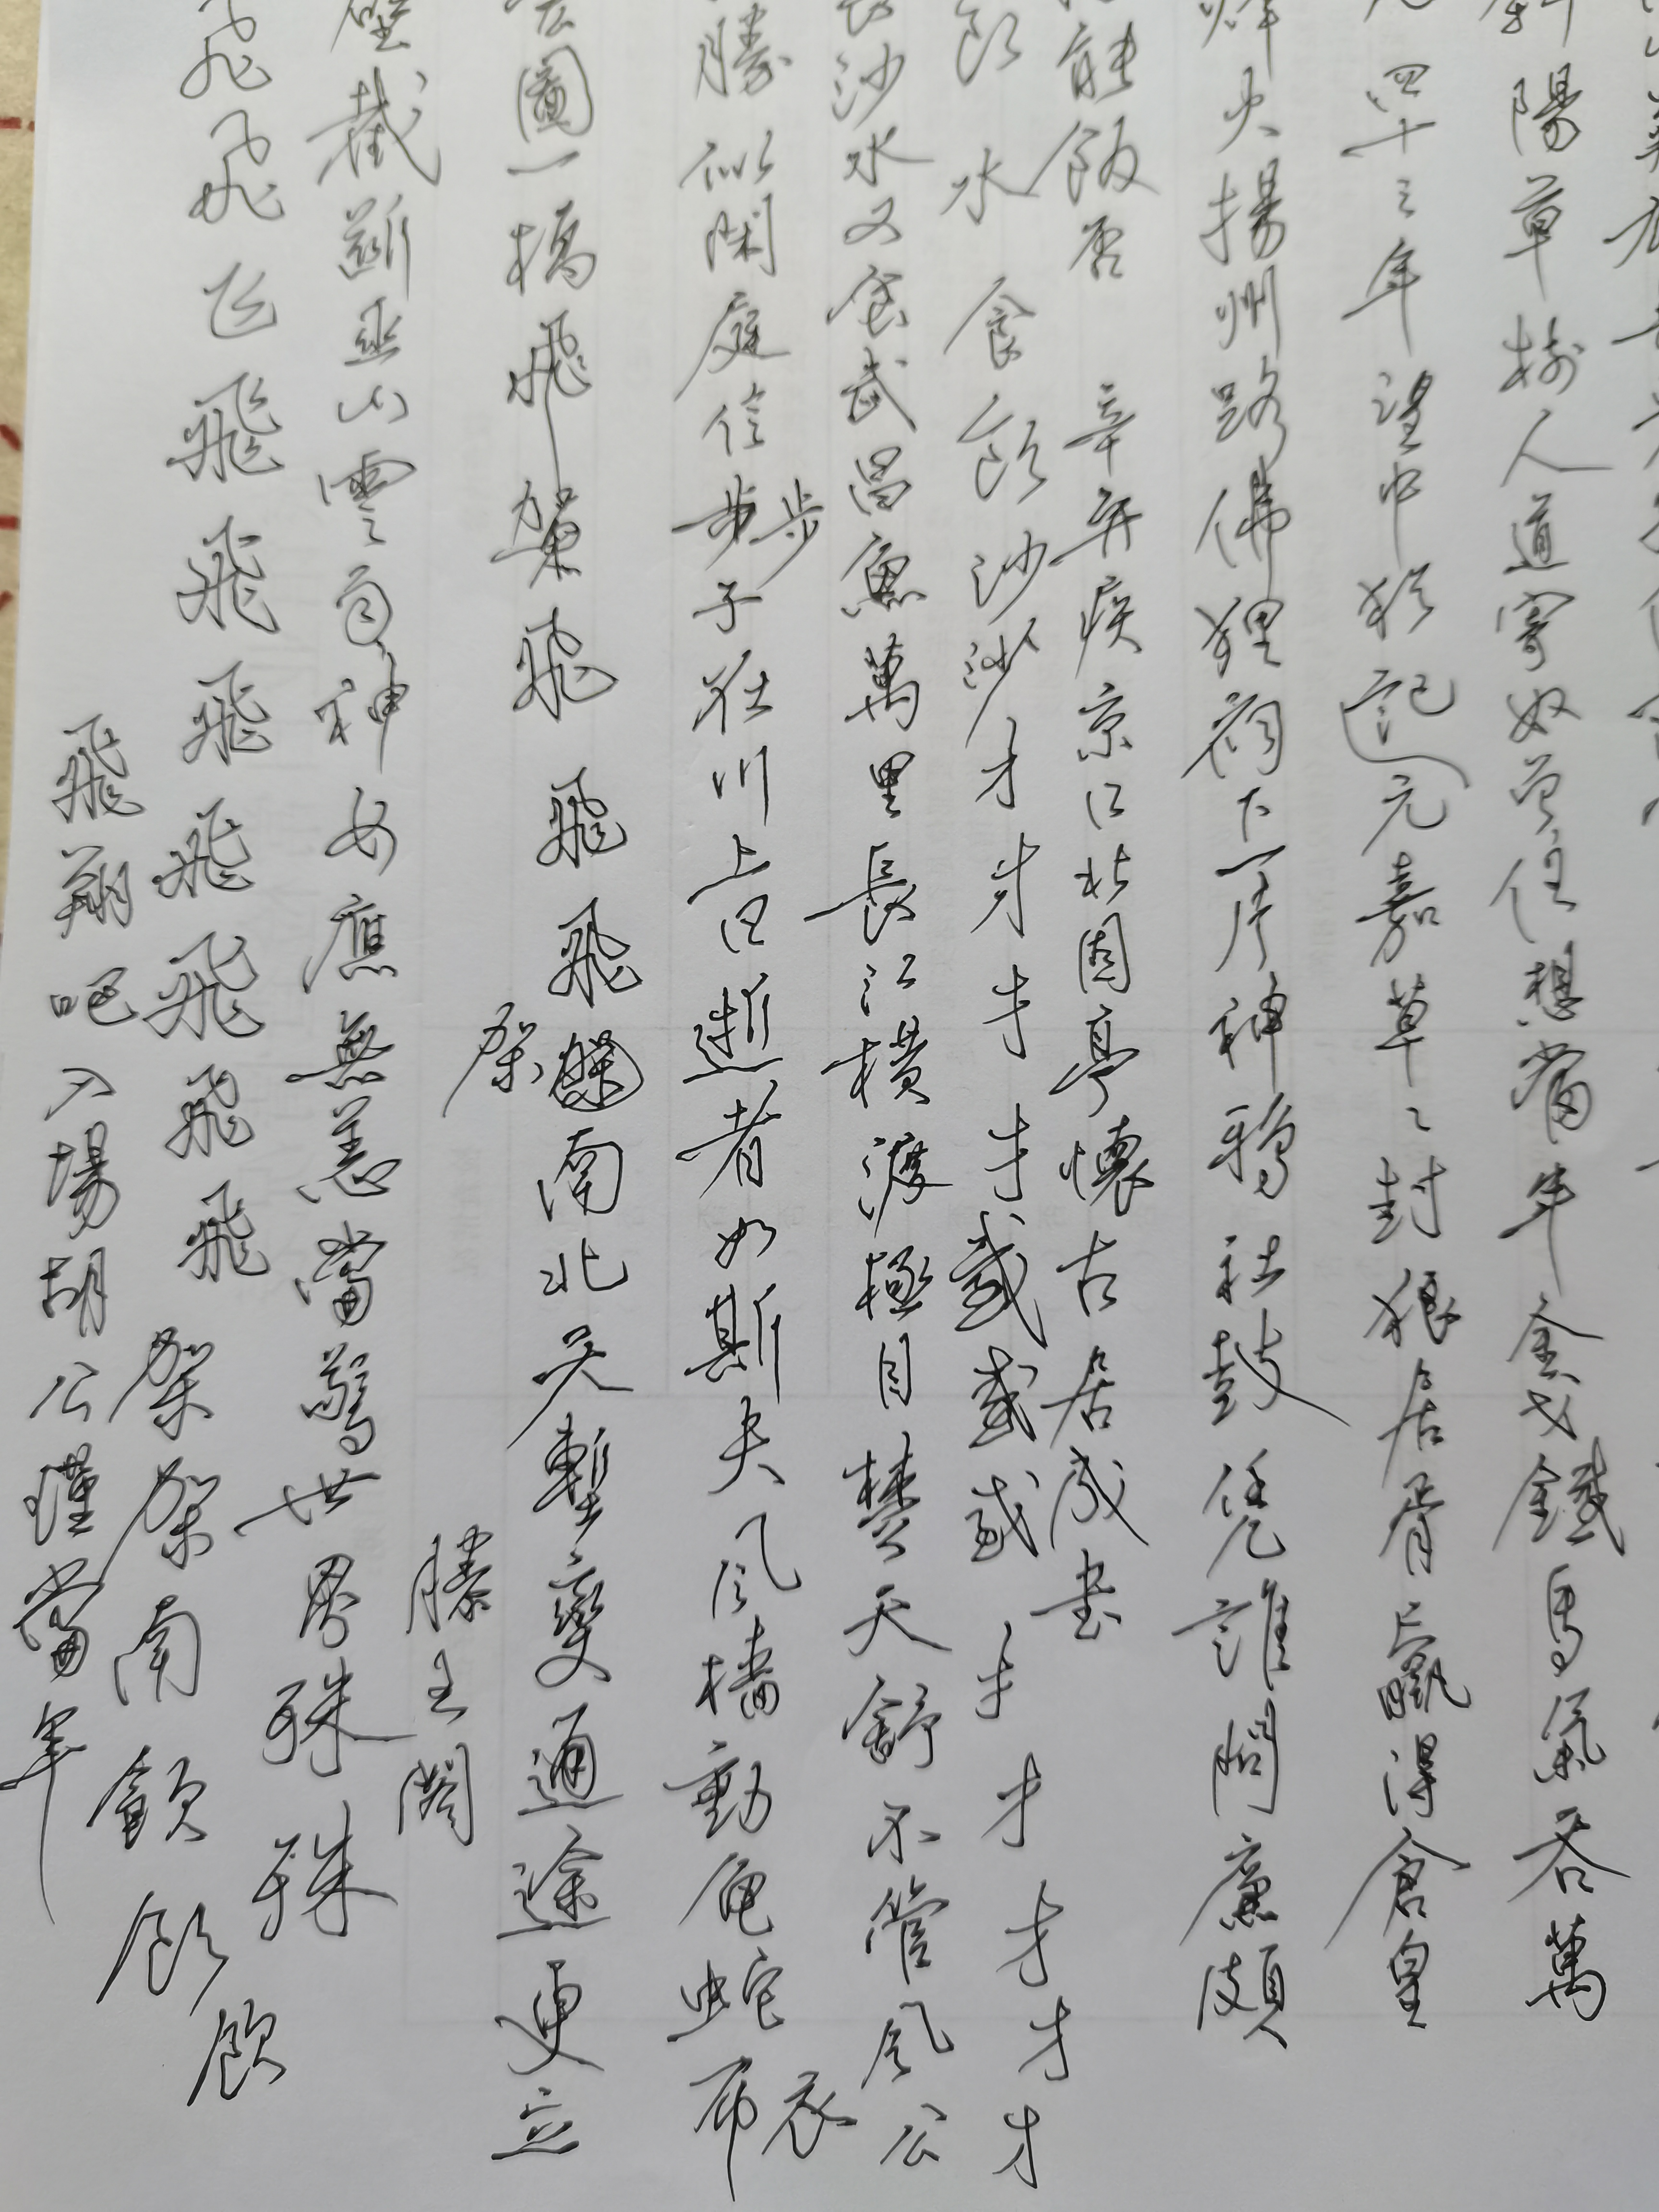 斜陽草樹人道寄奴曾住想當年金戈鐵馬氣吞萬
元嘉草々封狼居胥贏得倉皇
四十三年望中猶記
烽火揚州路佛狸祠下一片神鴉社鼓凭誰問廉頗
能飯否 辛弃疾京口北固亭懷古 居成書
飲 水 食飲沙沙才才才才
才才才才才
長沙水又食武昌魚萬里長江橫渡極目楚天舒不管風
勝似閑庭信步步子在川上曰逝者如斯夫風檣動龜蛇
宏圖一橋飛架飛飛飛架南北天塹變通途更立
滕王閣
壁截斷巫山雲雨神女應無恙當驚世界殊殊
飛飛飞飛飛飛飛飛飛飛架架南飲飲飲
飛翔吧入場胡公瑾當年